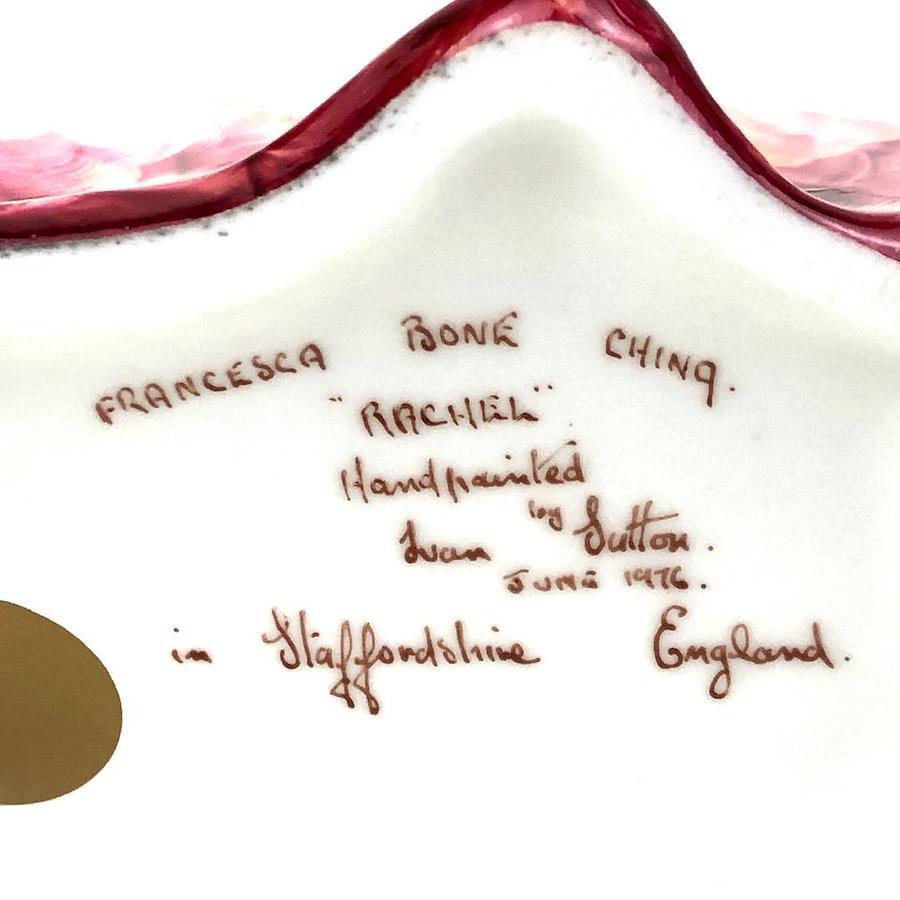 FRANCESCA BONE CHINA.
"RACHEL"
Handpainted
by
Ivan Sutton.
JUNE 1976.
in Staffordshire England.